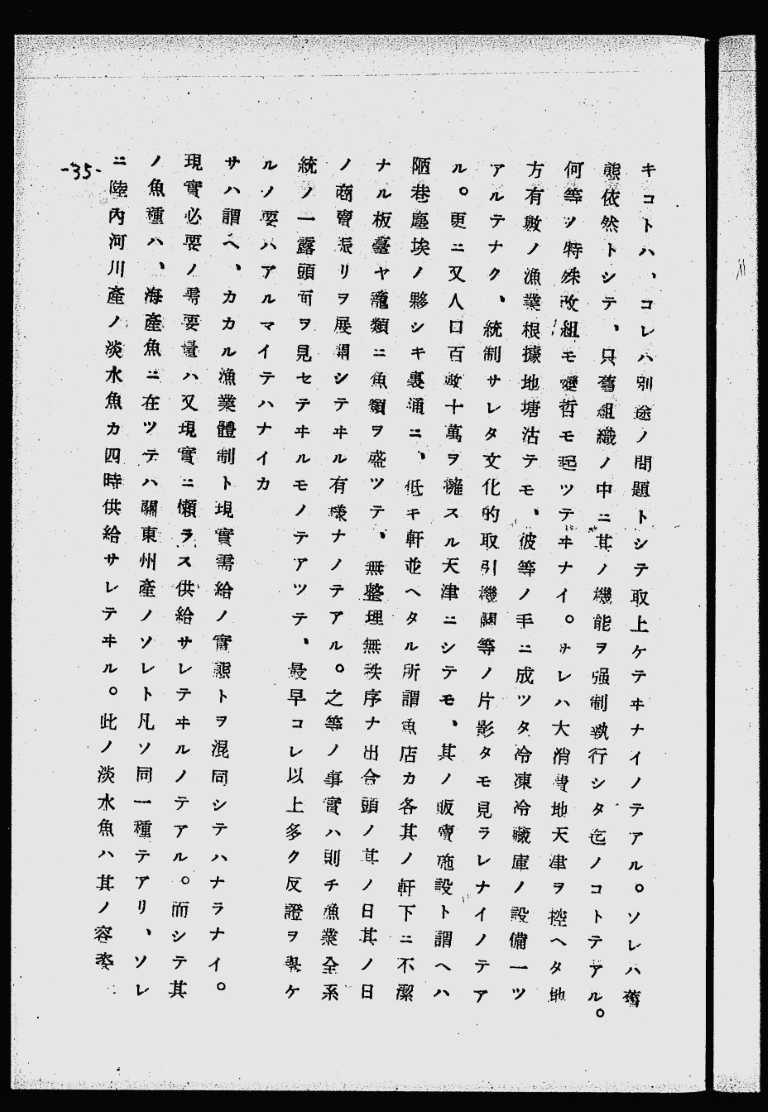 キコトハ、コレハ別途ノ問題トシテ取上ケテヰナイノテアル。ソレハ舊
態依然トシテ、只舊組織ノ中ニ其ノ機能ヲ强制執行シタ迄ノコトテアル。
何等ノ特殊改組モ變哲モ起ツテヰナイ。サレハ大消費地天津ヲ控ヘタ地
方有數ノ漁業根據地塘沽テモ、彼等ノ手ニ成ツタ冷凍冷藏庫ノ設備一ツ
アルテナク、統制サレタ文化的取引機關等ノ片影タモ見ラレナイノテア
ル。更ニ又人口百數十萬ヲ擁スル天津ニシテモ、其ノ販賣施設ト謂ヘハ
陋巷塵埃ノ夥シキ裏通ニ、低キ軒並ヘタル所謂魚店カ各其ノ軒下ニ不潔
ナル板臺ヤ籠類ニ魚類ヲ盛ツテ、無整理無秩序ナ出合頭ノ其ノ日其ノ日
ノ商賣振リヲ展開シテヰル有樣ナノテアル。之等ノ事實ハ則チ漁業全系
統ノ一露頭面ヲ見セテヰルモノテアツテ、最早コレ以上多ク反證ヲ擧ケ
ルノ要ハアルマイテハナイカ
サハ謂ヘ、カカル漁業體制ト現實需給ノ實態トヲ混同シテハナラナイ。
現實必要ノ需要量ハ又現實ニ懶ラス供給サレテヰルノテアル。而シテ其
ノ魚種ハ、海產魚ニ在ツテハ關東州產ノソレト凡ソ同一種テアリ、ソレ
ニ陸內河川產ノ淡水魚カ四時供給サレテヰル。此ノ淡水魚ハ其ノ容姿
-35-